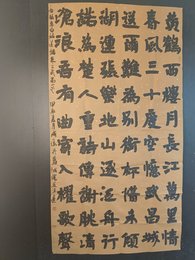 黃鶴西樓月長江萬里情
春風三十度空憶武昌城
送爾難為別銜杯惜未傾
湖連張樂地山逐泛舟行
諾為楚人重詩傳謝朓清
滄浪吾有曲寄入櫂歌聲